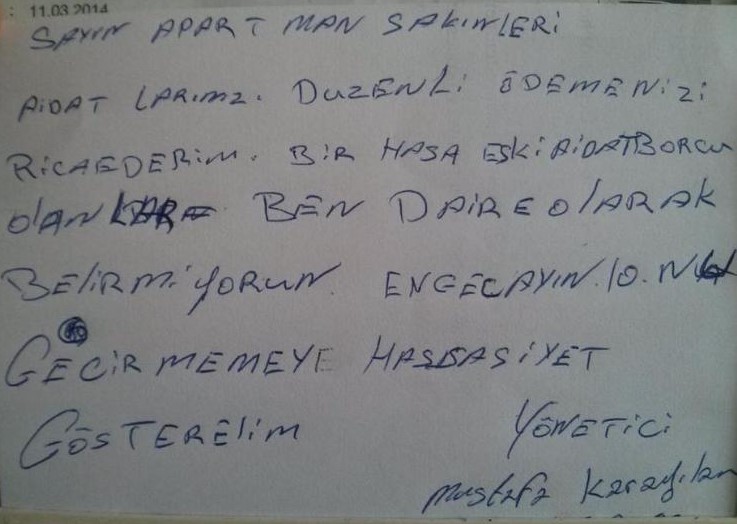 : 11.03.2014
SAYIN APART MAN SAKINLERİ
AİDAT LARIMZ. DUZENLİ ÖDEMENİZİ
RİCAEDERİM. BİR HASA ESKİ AİDATBORCU
OlANLAR BEN DAİRE OlARAK
BElİRMİYORUN. ENGECAYIN.10.N
GECİRMEMEYE HASSASİYET
GÖSTERElİM YÖNETİCİ
Mustafa Karayılan